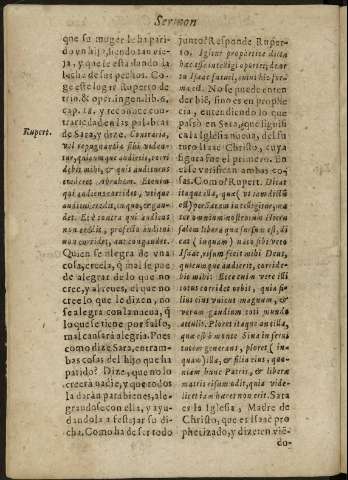 Sermon
que su muger le ha pari-
do vn hijo, siendo tan vie-
ja, y que le està dando la
leche de sus pechos. Co-
ge este lugar Ruperto de
trin. & oper. in gen. lib. 6.
cap. 18. y reconoce con-
trariedad en las palabras
de Sara, y dize. Contraria,
vel repugnantia sibi viden-
tur, quicumque audierit, corri-
debit mihi, & quis auditurus
crederet Abraham. Etenim
qui audiens corridet, vtique
auditui credit, in quo, & gau-
det. Et è contra qui auditus
non credit, profectò auditui
non corridet, aut congaudet.
Quien se alegra de vna
cosa, creela, q̃ mal se pue-
de alegrar de lo que no
cree, y al reues, el que no
cree lo que le dizen, no
se alegra con la nueua, q̃
lo que se tiene por falso,
mal causarà alegria. Pues
como dize Sara, entram-
bas cosas del hijo que ha
parido? Dize, que no lo
creerà nadie, y que todos
la daràn parabienes, ale-
grandose con ella, y ayu-
dandola a festejar su di-
cha. Como ha de ser todo
Rupert.
junto? Responde Ruper-
to. Igitur propheticè dicta
hæc esse intelligi oportet; de ve-
ro Isaac futuri, cuius hic for-
ma est. No se puede enten-
der biẽ, sino es en prophe-
cia, entendiendo lo que
passò en Sara, que signifi-
ca la Iglesia nueua, del fu-
turo Isaac Christo, cuya
figura fue el primero. En
ella se verifican ambas co-
sas. Como? Rupert. Dicat
itaque illa, quæ (vt iam dictũ
est) per Saram intelligitur, ma-
ter omnium nostrûm Hieru-
salem libera quæ sursum est, di-
cat (inquam) nato sibi vero
Isaac, risum fecit mihi Deus,
quicumque audierit, corride-
bit mihi. Ecce enim vere illi
totus corridet orbis, quia fi-
lius eius vnicus magnum, &
verum gaudium toti mundo
attulit. Ploret itaque ancilla,
quæ est à monte Sina in serui-
tutem generans, ploret (in-
quam) illa, & filia eius, quo-
niam hunc Patris, & liberæ
matris risum odit, quia vide-
licet iam hæres non erit. Sara
es la Iglesia, Madre de
Christo, que es Isaac pro-
phetizado, y dizeren viẽ-
do-